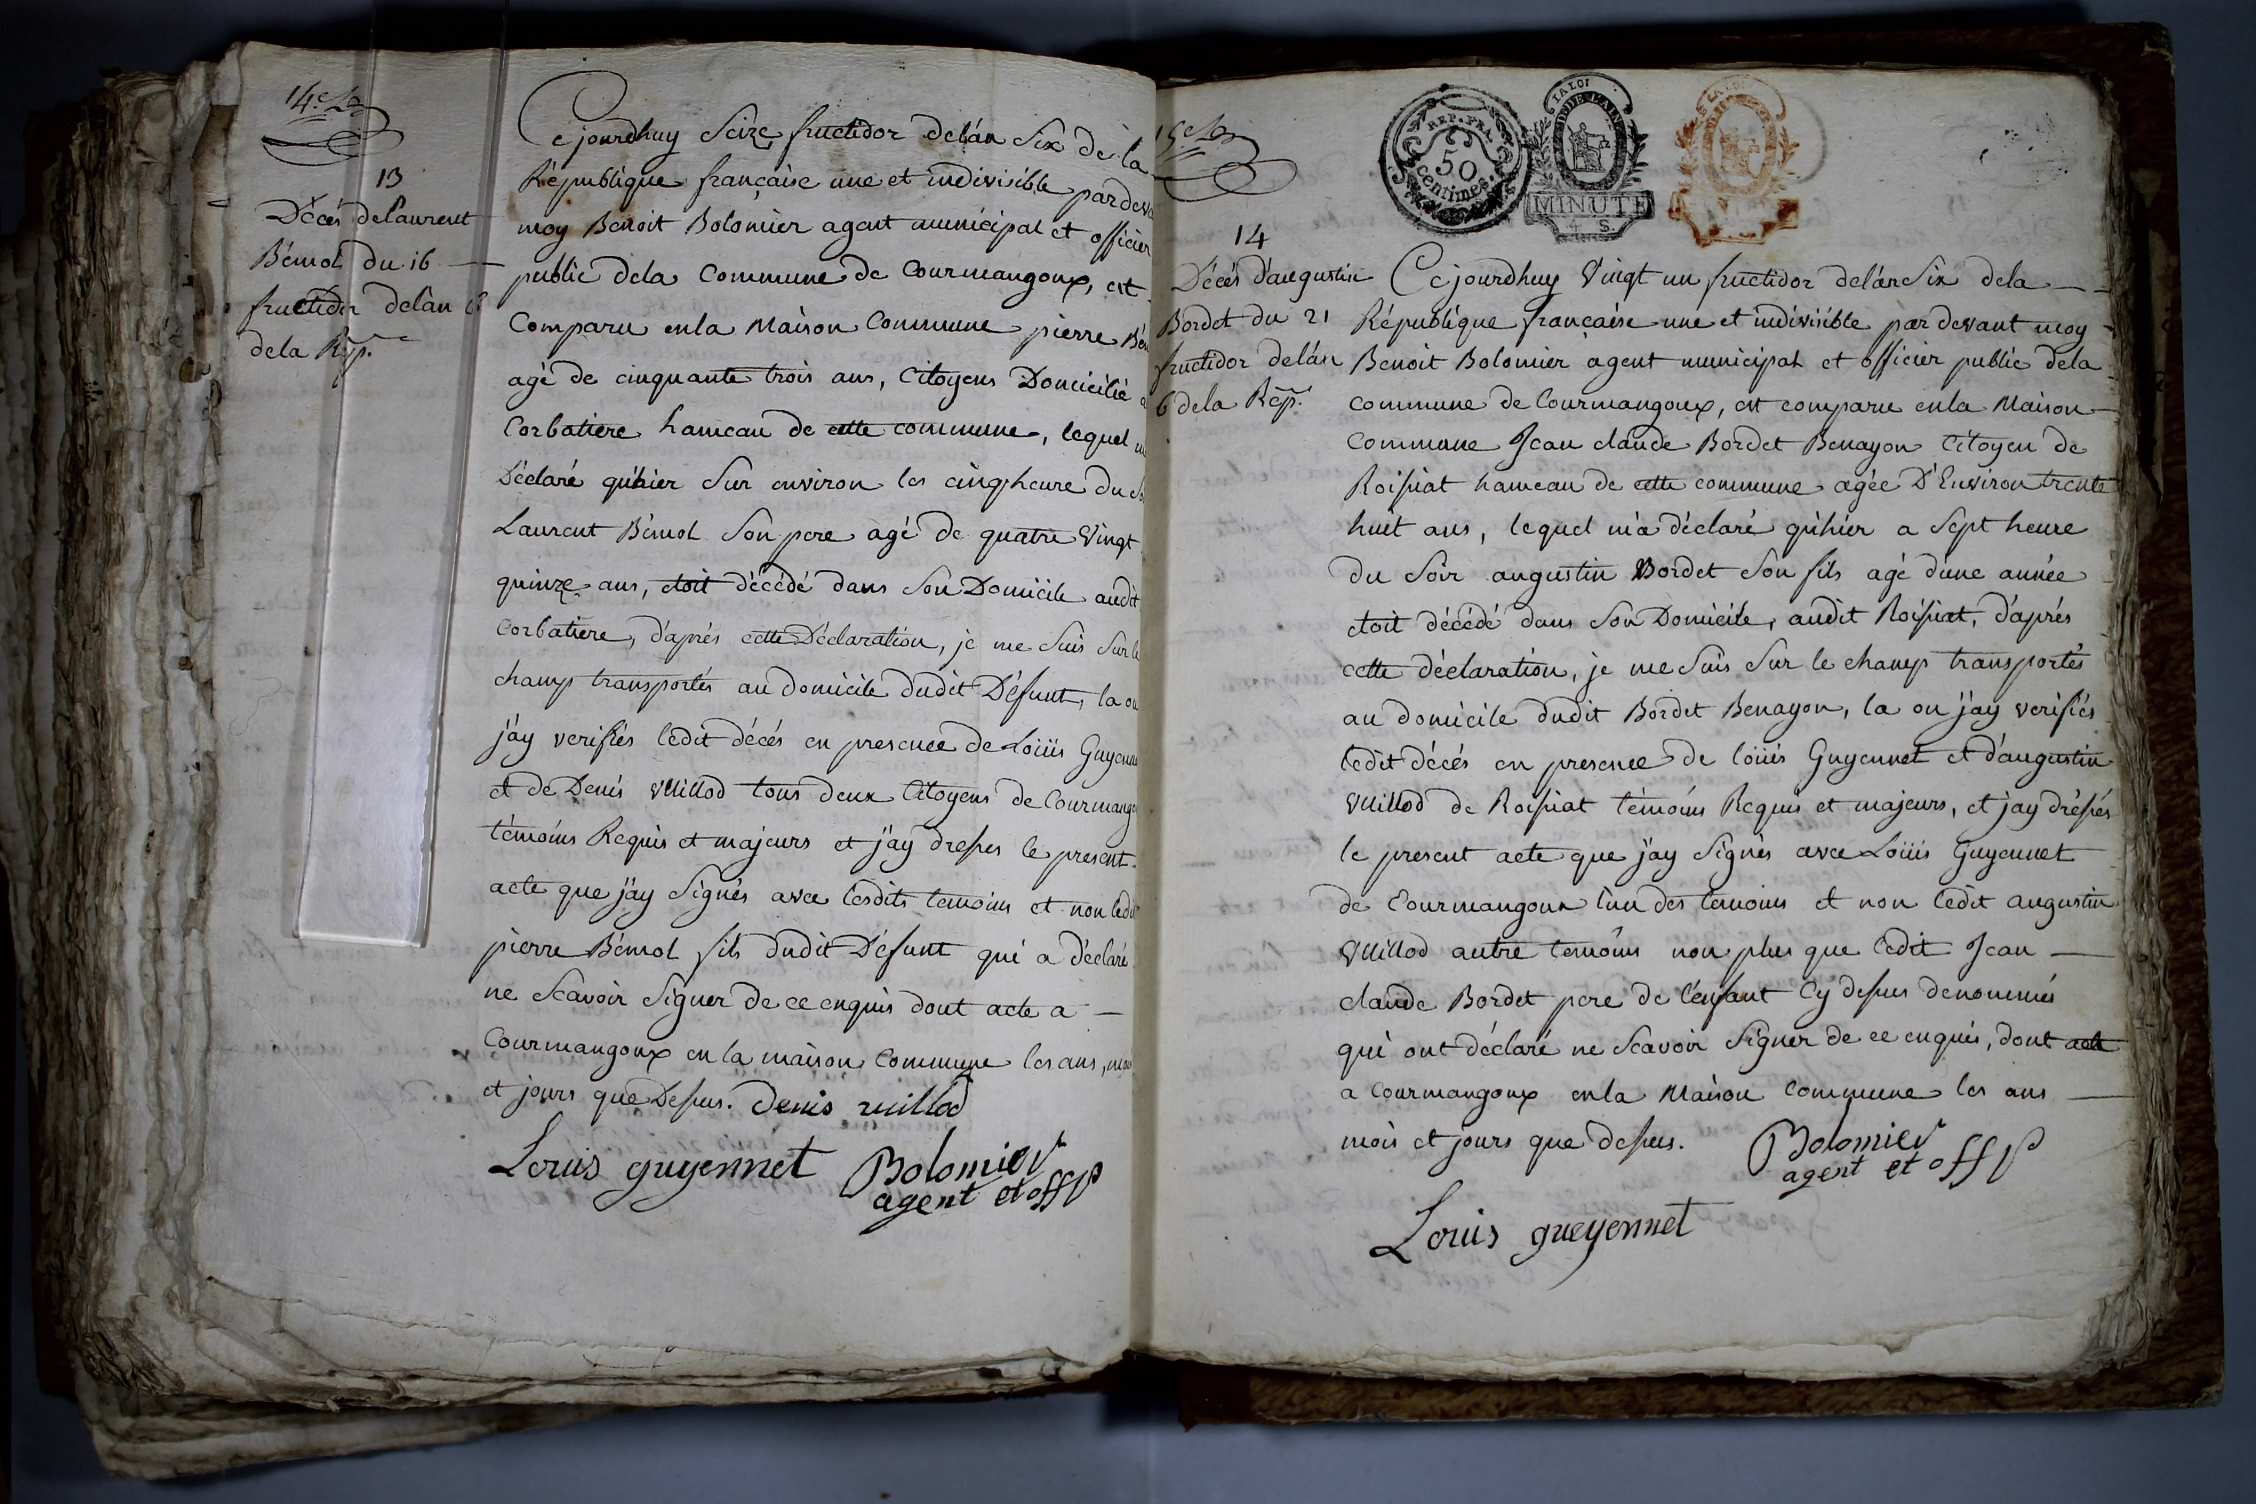 14.e
13
Décés de Laurent
Bémol du 16
fructidor delán 6
dela Rep.
Cejourdhuy Seize fructidor delán Six de la
République française une et indivisible pardev
moy Benoit Bolomier agent municipal et officier
public dela Commune de Courmangoux, est
Comparu enla Maison Commune pierre Bém
agé de cinquante trois ans, Citoyens Domicilié a
Corbatiere hameau de cette commune, lequel m
Déclaré qu'hier Sur environ les cinq heure du S
Laurent Bémol Son pere agé de quatre Vingt
quinze ans, étoit décédé dans Son Domicile audit
Corbatiere, d'aprés cette Déclaration, je me Suis Surle
champ transportés au domicile dudit Défunt, la ou
j'ay verifiés ledit décés en presence de Loüis Guyenn
et de Denis Vuillod tous deux Citoyens de Courmango
témoins Requis et majeurs et j'ay dressés le present
acte que j'ay Signés avec lesdits temoins et non ledit
pierre Bémol fils dudit Défunt qui a déclaré
ne Scavoir Signer de ce enquis dont acte a
Courmangoux en la maison Commune les ans, mois
et jours que Dessus. Denis vuillod
Louis guyennet Bolomier
agent et off p
15.e
REP. FRA.
50
centimes.
LA LOI
MINUTE
14
Décés d'augustin
Bordet du 21
fructidor delán
6 dela Rép.
Cejourdhuy Vingt un fructidor delán Six dela
République française une et indivisible par devant moy
Benoit Bolomier agent municipal et officier public dela
commune de Courmangoux, est comparu enla Maison
Commune Jean claude Bordet Benayon Citoyen de
Roissiat hameau de cette commune agée D'Environ trente
huit ans, lequel m'a déclaré qu'hier a Sept heure
du Soir augustin Bordet Son fils agé dune année
etoit décédé dans Son Domicile, audit Roissiat, d'aprés
cette déclaration, je me Suis Sur le champ transportés
au domicile dudit Bordet Benayon, la ou j'ay verifiés
ledit décés en presence de loüis Guyennet et d'augustin
Vuillod de Roissiat témoins Requis et majeurs, et jay dréssés
le present acte que j'ay Signés avec Loüis Guyennet
de Courmangoux l'un des temoins et non ledit augustin
Vuillod autre temoins non plus que ledit Jean
claude Bordet pere de l'enfant Cy dessus denommés
qui ont déclaré ne Scavoir Signer de ce enquis, dont acte
a Courmangoux enla Maison Commune les ans
mois et jours que dessus. Bolomier
agent et off p
Louis gueyennet